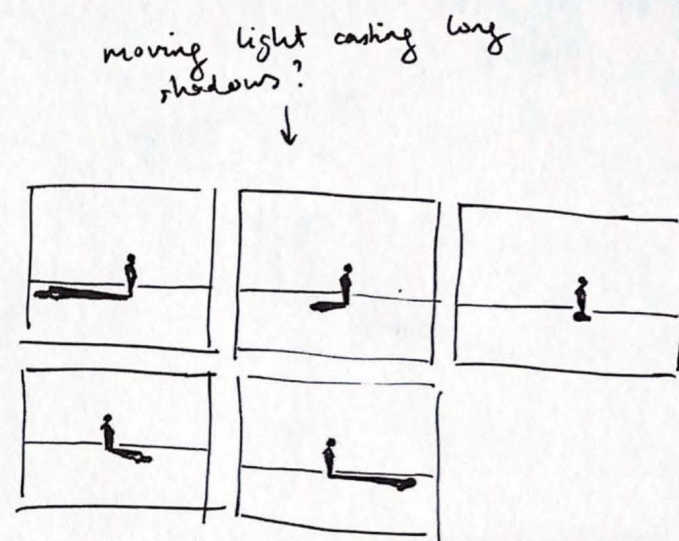 moving light casting long
shadows?